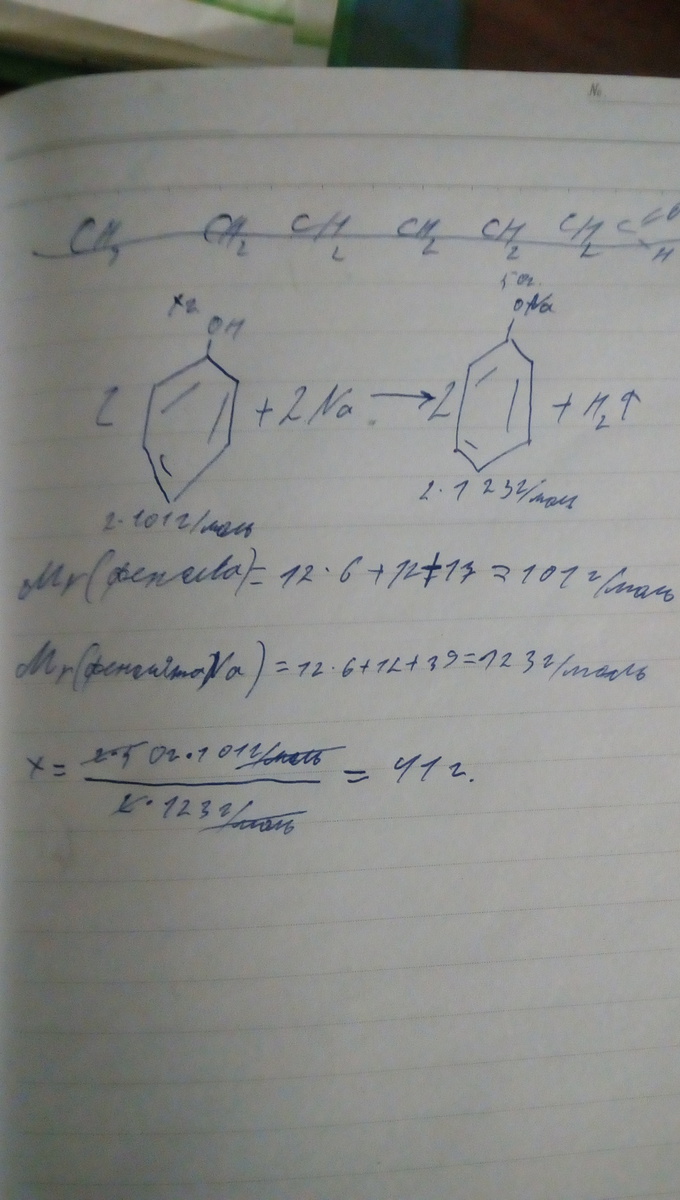 №
CH₃ CH₂ CH₂ CH₂ CH₂ CH₂ C
H
x г 50г.
OH ONa
2 + 2Na → 2 + H₂↑
2·101г/моль 2·123г/моль
Mr(фенола)= 12·6+12+17=101г/моль
Mr(фенолята Na)=12·6+12+39=123г/моль
x= 2·50г·101г/моль = 41г.
2·123г/моль